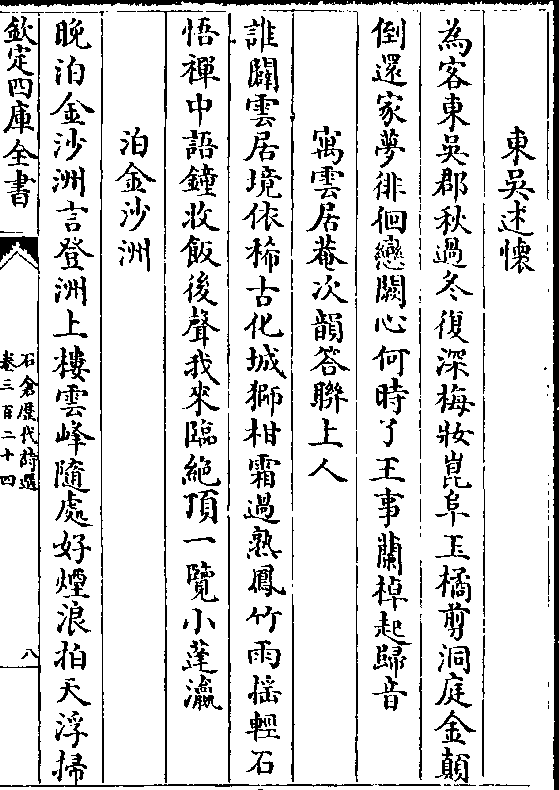 東吳述懷
為客東吳郡秋過冬復深梅妝崑阜玉橘剪洞庭金顛
倒還家夢徘徊戀闕心何時了王事蘭棹起歸音
寓雲居菴次韻答聯上人
誰闢雲居境依稀古化城獅柑霜過熟鳳竹雨揺輕石
悟禪中語鐘收飯後聲我來臨絶頂一覽小蓬瀛
泊金沙洲
晚泊金沙洲言登洲上樓雲峰隨處好煙浪拍天浮掃
欽定四庫全書
石倉歷代詩選
卷三百二十四
八